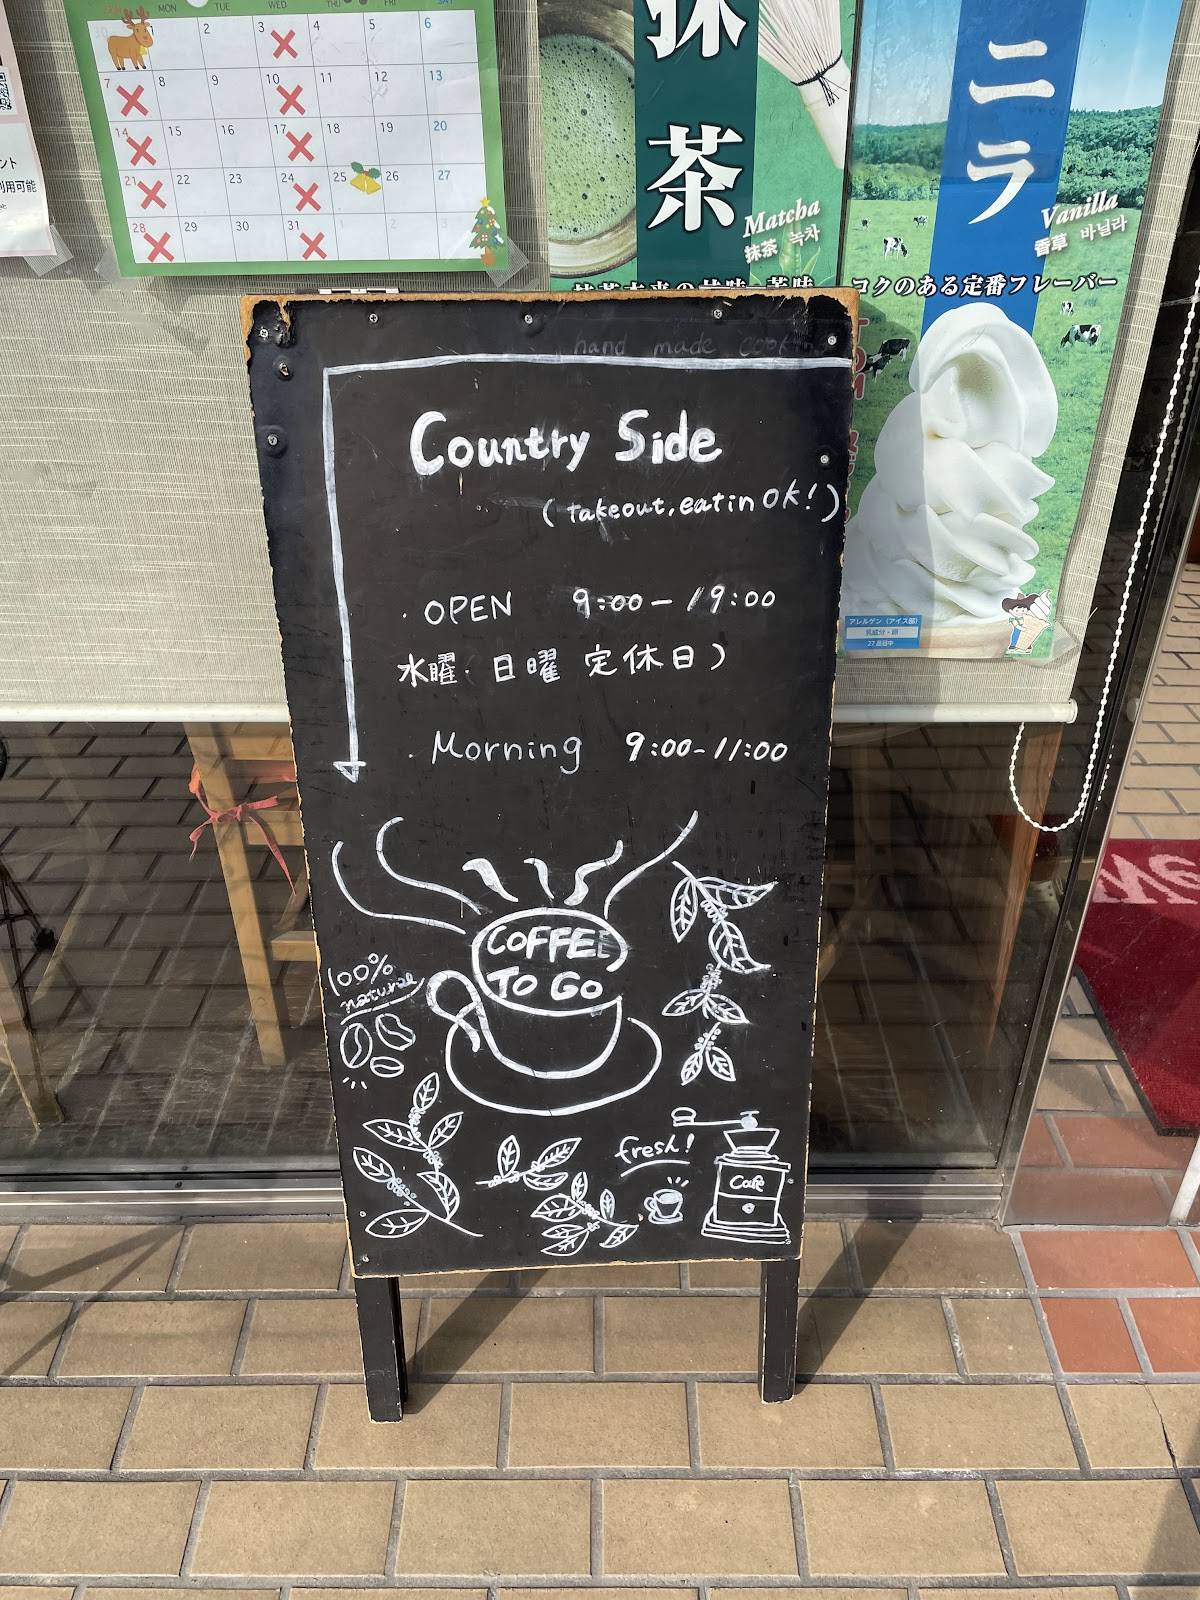 MON TUE WED THU FRI SAT
1 2 3 4 5 6
7 8 9 10 11 12 13
14 15 16 17 18 19 20
21 22 23 24 25 26 27
28 29 30 31
ント
利用可能
抹茶
Matcha
抹茶 녹차
ニラ
Vanilla
香草 바닐라
コクのある定番フレーバー
アレルゲン（アイス部）
乳成分・卵
27品目中
hand made cooking
Country Side
(takeout, eat in OK!)
・OPEN 9:00-19:00
水曜・日曜 定休日)
・Morning 9:00-11:00
COFFEE
TO GO
100%
natural
fresh!
Café